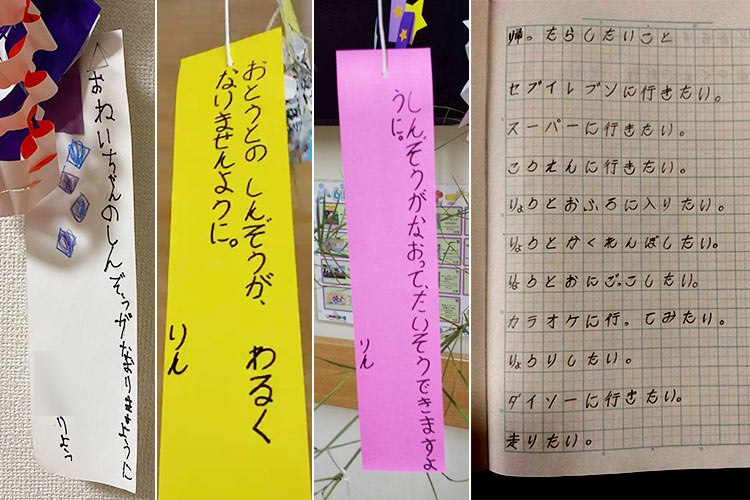 おねいちゃんのしんぞうがなおりますように
りょう
おとうとの しんぞうが、 わるく
なりませんように。
りん
しんぞうがなおって、たいそうできますよ
うに。
りん
帰ったらしたいこと
セブイレブンに行きたい。
スーパーに行きたい。
こうえんに行きたい。
りょうとおふろに入りたい。
りょうとかくれんぼしたい。
りょうとおにごっこしたい。
カラオケに行ってみたい。
りょうりしたい。
ダイソーに行きたい。
走りたい。